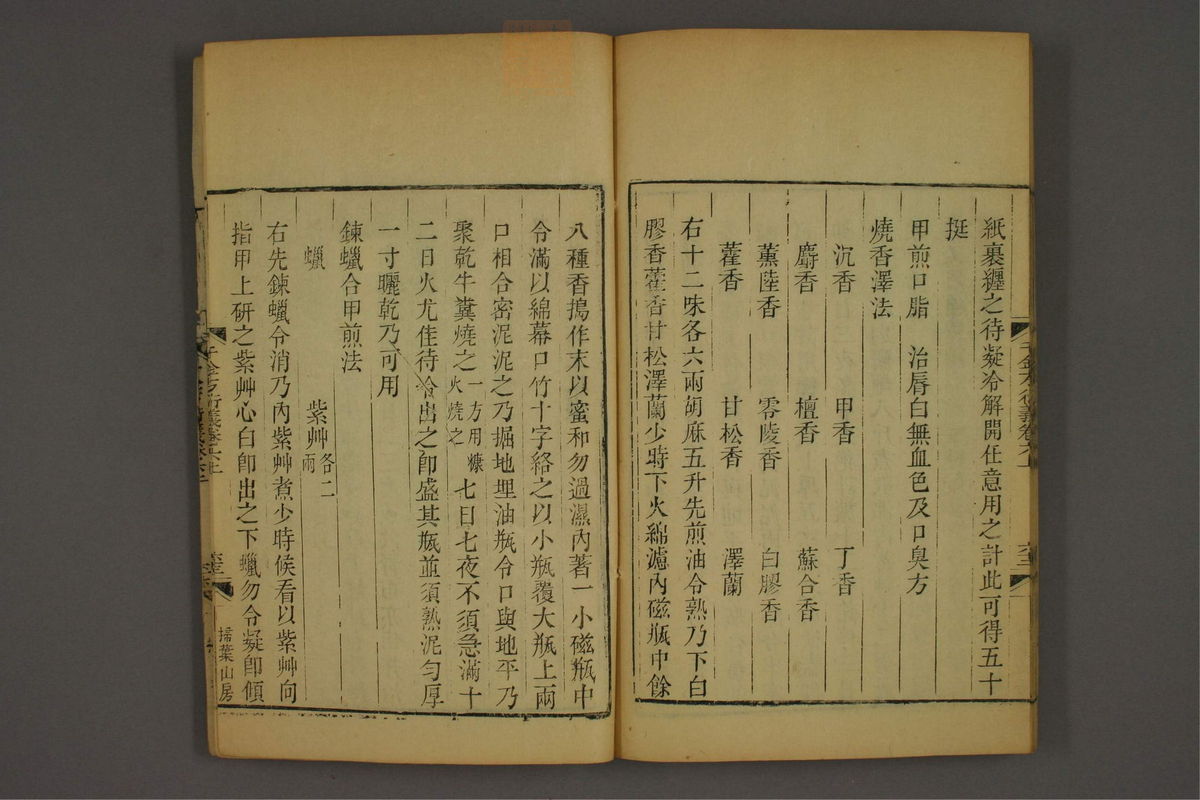 紙裹纏之待凝冷解開任意用之計此可得五十
挺
甲煎口脂　治脣白無血色及口臭方
燒香澤法
沉香　甲香　丁香
麝香　檀香　蘇合香
薰陸香　零陵香　白膠香
藿香　甘松香　澤蘭
右十二味各六兩胡麻五升先煎油令熟乃下白
膠香藿香甘松澤蘭少時下火綿濾內磁瓶中餘
八種香搗作末以蜜和勿過濕內著一小磁瓶中
令滿以綿幕口竹十字絡之以小瓶覆大瓶上兩
口相合密泥泥之乃掘地埋油瓶令口與地平乃
聚乾牛糞燒之一方用糠火燒之七日七夜不須急滿十
二日火尤佳待冷出之卽盛其瓶並須熟泥勻厚
一寸曬乾乃可用
鍊蠟合甲煎法
蠟　紫艸各二兩
右先鍊蠟令消乃內紫艸煮少時候看以紫艸向
指甲上研之紫艸心白卽出之下蠟勿令凝卽傾
千金方衍義卷六上
掃葉山房